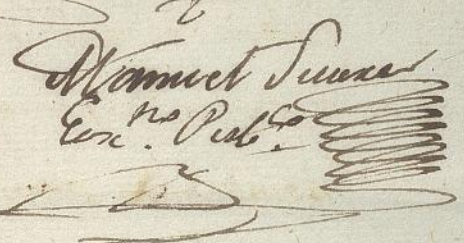 Manuel Suarez
Esc.no Pub.co